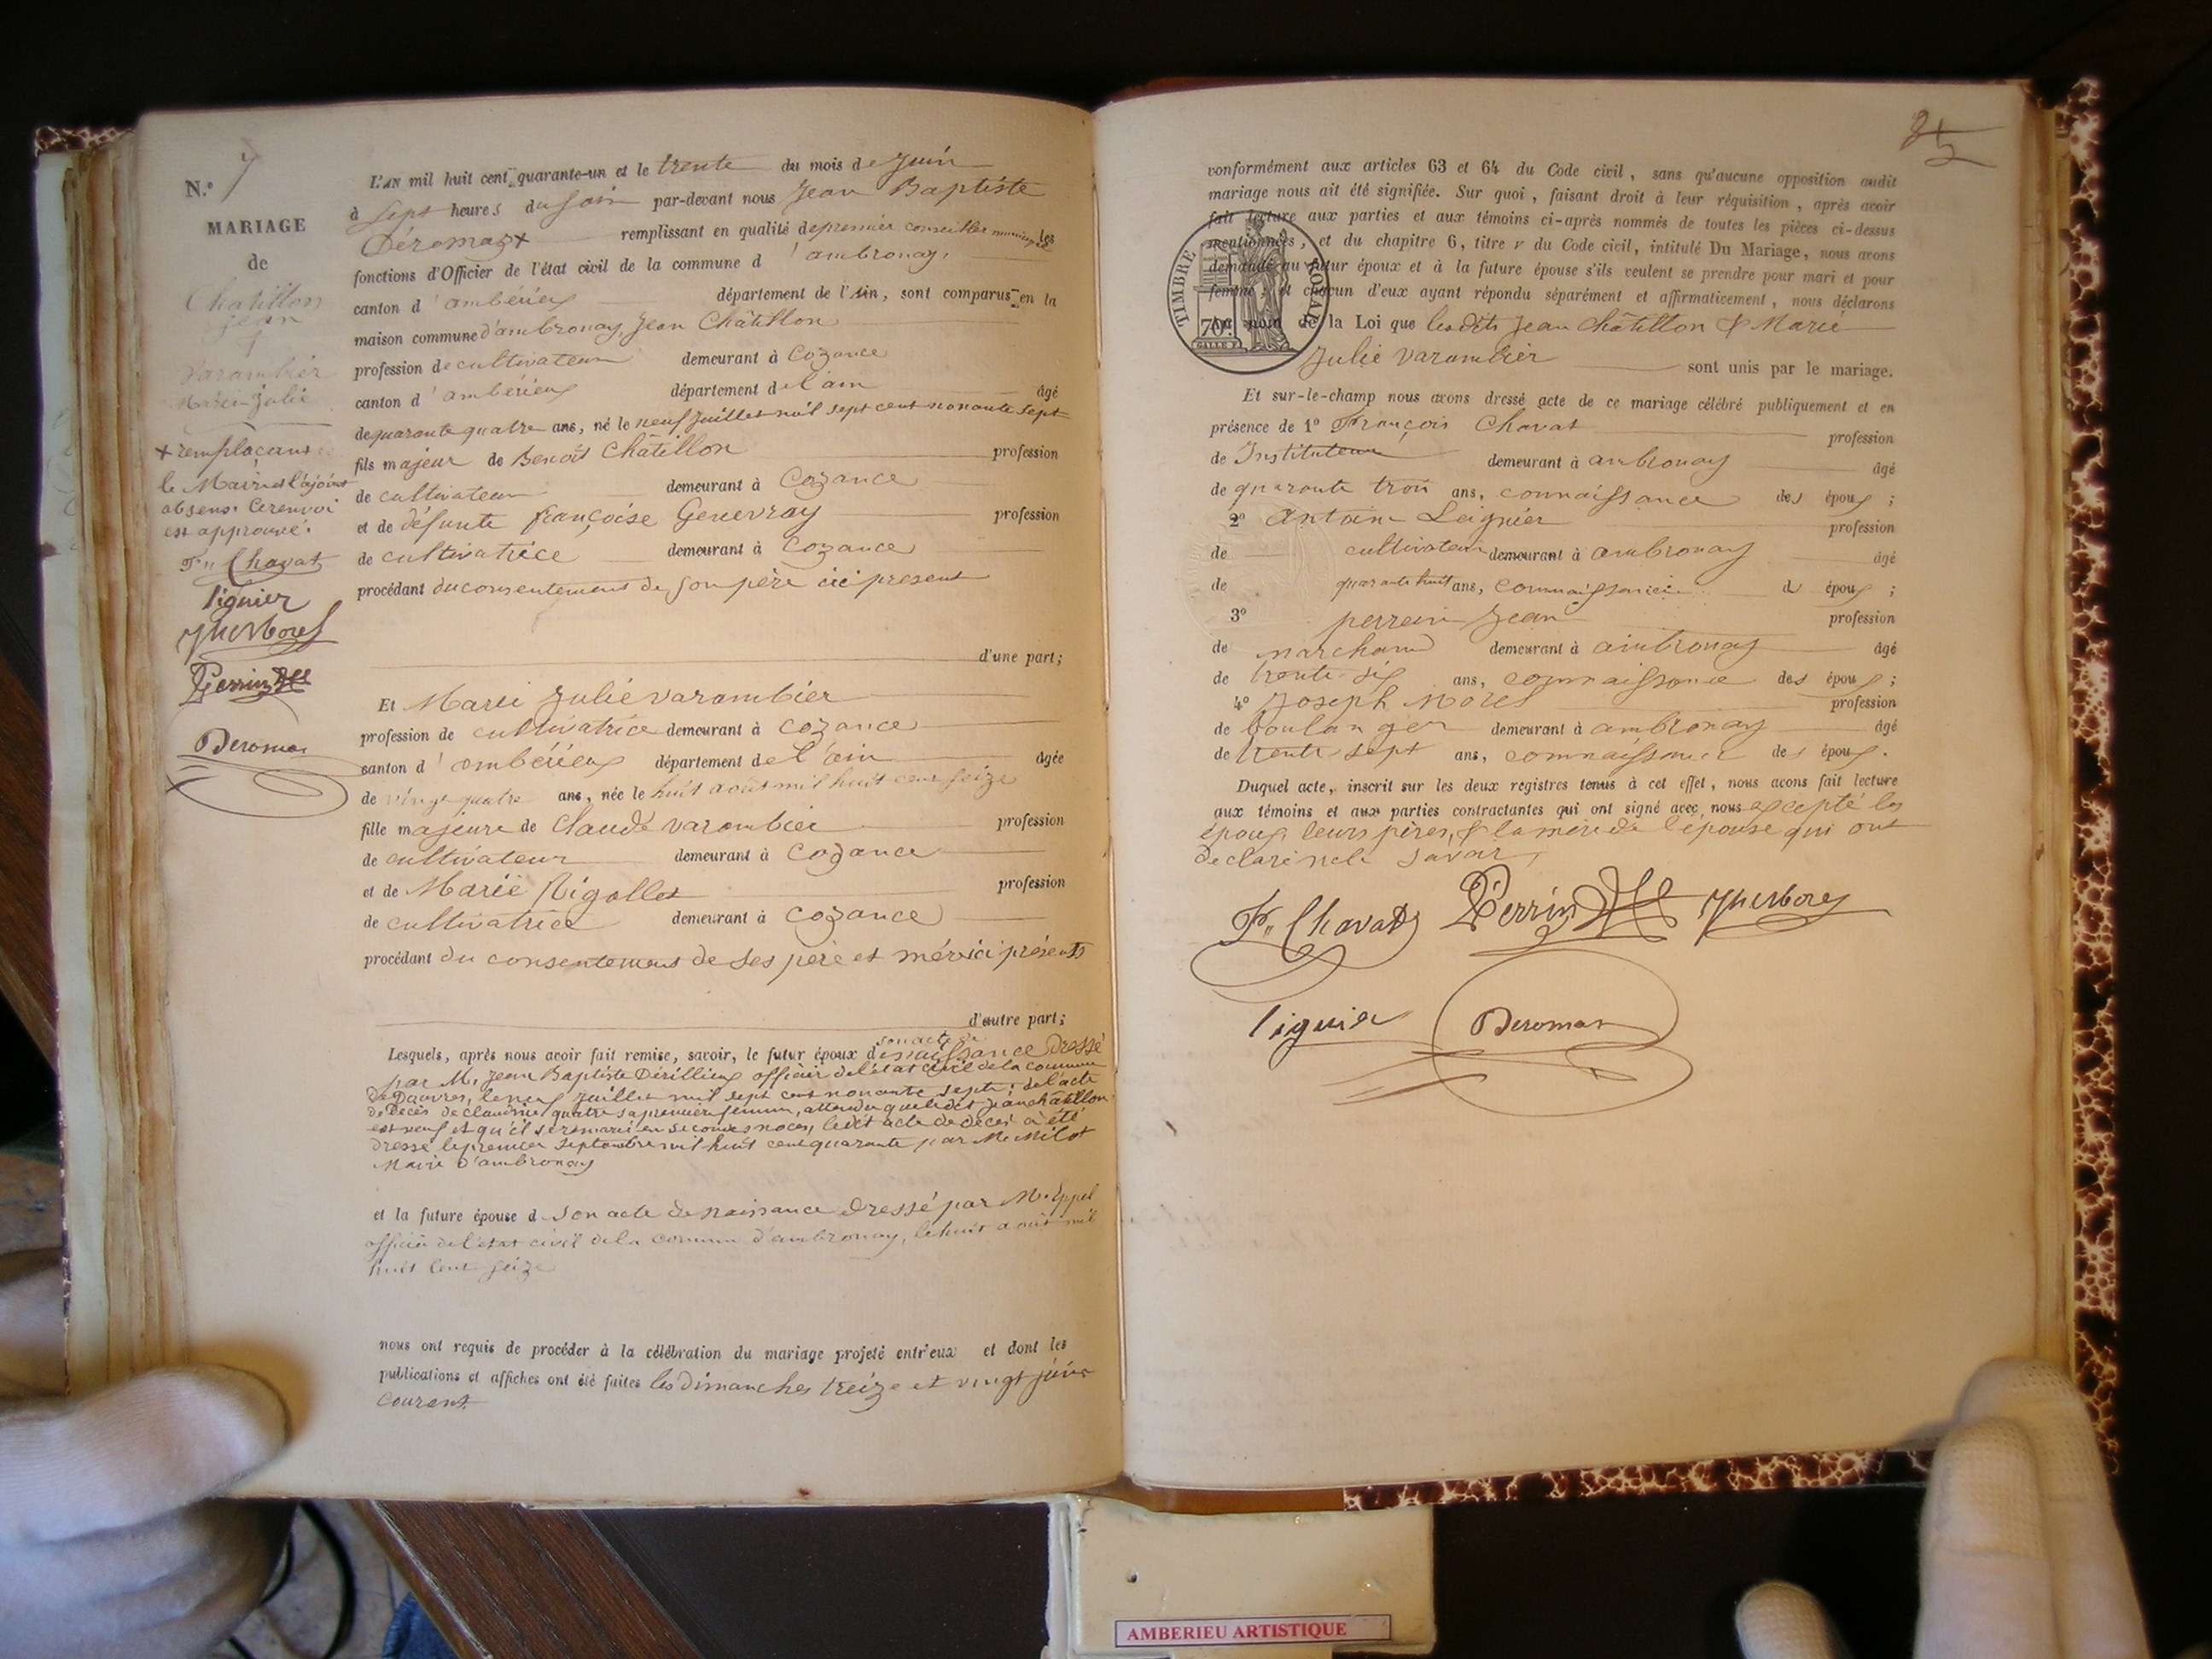 N.o 7
MARIAGE
de
Chatillon
Jean
&
Varambier
Marie Julie
+ remplaçant
le Maire et l'ajoint
absens. Ce renvoi
est approuvé.
Fs Chavat
Liguier
Jh Morel
Perrin
Deromas
L'AN mil huit cent quarante-un et le trente du mois de Juin
à Sept heures du Soir par-devant nous Jean Baptiste
Déromas + remplissant en qualité de premier conseiller municipal les
fonctions d'Officier de l'état civil de la commune d'ambronay,
canton d'ambérieux département de l'Ain, sont comparus en la
maison commune d'ambronay, Jean Châtillon
profession de cultivateur demeurant à Cozance
canton d'ambérieux département de l'ain âgé
de quarante quatre ans, né le neuf Juillet mil sept cent nonante sept
fils majeur de Benoit Châtillon profession
de cultivateur demeurant à Cozance
et de défunte françoise Genevray profession
de cultivatrice demeurant à Cozance
procédant du consentement de Son père ici present
d'une part;
Et Marie Julie varambier
profession de cultivatrice demeurant à cozance
canton d'ambérieux département de l'ain âgée
de vingt quatre ans, née le huit août mil huit cent seize
fille majeure de Claude varambier profession
de cultivateur demeurant à Cozance
et de Marie Rigollet profession
de cultivatrice demeurant à cozance
procédant du consentement de ses père et mère ici présents
d'autre part;
Lesquels, après nous avoir fait remise, savoir, le futur époux de son acte de naissance Dressé
par M. Jean Baptiste Dérillieux officier de l'état civil de la commune
de Douvres, le neuf Juillet mil sept cent nonante sept; de l'acte
de Décès de claudine quatre sa première femme, attendu que le dit Jean châtillon
est veuf et qu'il se remarie en secondes noces, ledit acte de décès a été
dressé le premier septembre mil huit cent quarante par M. Milot
Maire d'ambronay
et la future épouse d son acte de naissance dressé par M. Eppel
officier de l'état civil de la commune d'ambronay, le huit août mil
huit cent seize
nous ont requis de procéder à la célébration du mariage projeté entr'eux et dont les
publications et affiches ont été faites les dimanches treize et vingt juin
courant.
85
conformément aux articles 63 et 64 du Code civil, sans qu'aucune opposition audit
mariage nous ait été signifiée. Sur quoi, faisant droit à leur réquisition, après avoir
fait lecture aux parties et aux témoins ci-après nommés de toutes les pièces ci-dessus
mentionnées, et du chapitre 6, titre v du Code civil, intitulé Du Mariage, nous avons
demandé au futur époux et à la future épouse s'ils veulent se prendre pour mari et pour
femme; et chacun d'eux ayant répondu séparément et affirmativement, nous déclarons
au nom de la Loi que lesdits Jean châtillon & Marie
Julie varambier sont unis par le mariage.
TIMBRE ROYAL
70c
Et sur-le-champ nous avons dressé acte de ce mariage célébré publiquement et en
présence de 1o François Chavat profession
de Instituteur demeurant à ambronay âgé
de quarante trois ans, connaissance des époux;
2o Antoine Leignier profession
de cultivateur demeurant à ambronay âgé
de quarante huit ans, connaissance d époux;
3o perrin Jean profession
de marchand demeurant à ambronay âgé
de trente six ans, connaissance des époux;
4o Joseph Morel profession
de boulanger demeurant à ambronay âgé
de trente sept ans, connaissance des époux.
Duquel acte, inscrit sur les deux registres tenus à cet effet, nous avons fait lecture
aux témoins et aux parties contractantes qui ont signé avec nous excepté les
époux leurs pères, & la mère de l'épouse qui ont
declaré ne le savoir,
Fs Chavat Perrin Jh Morel
Liguier Deromas
AMBERIEU ARTISTIQUE